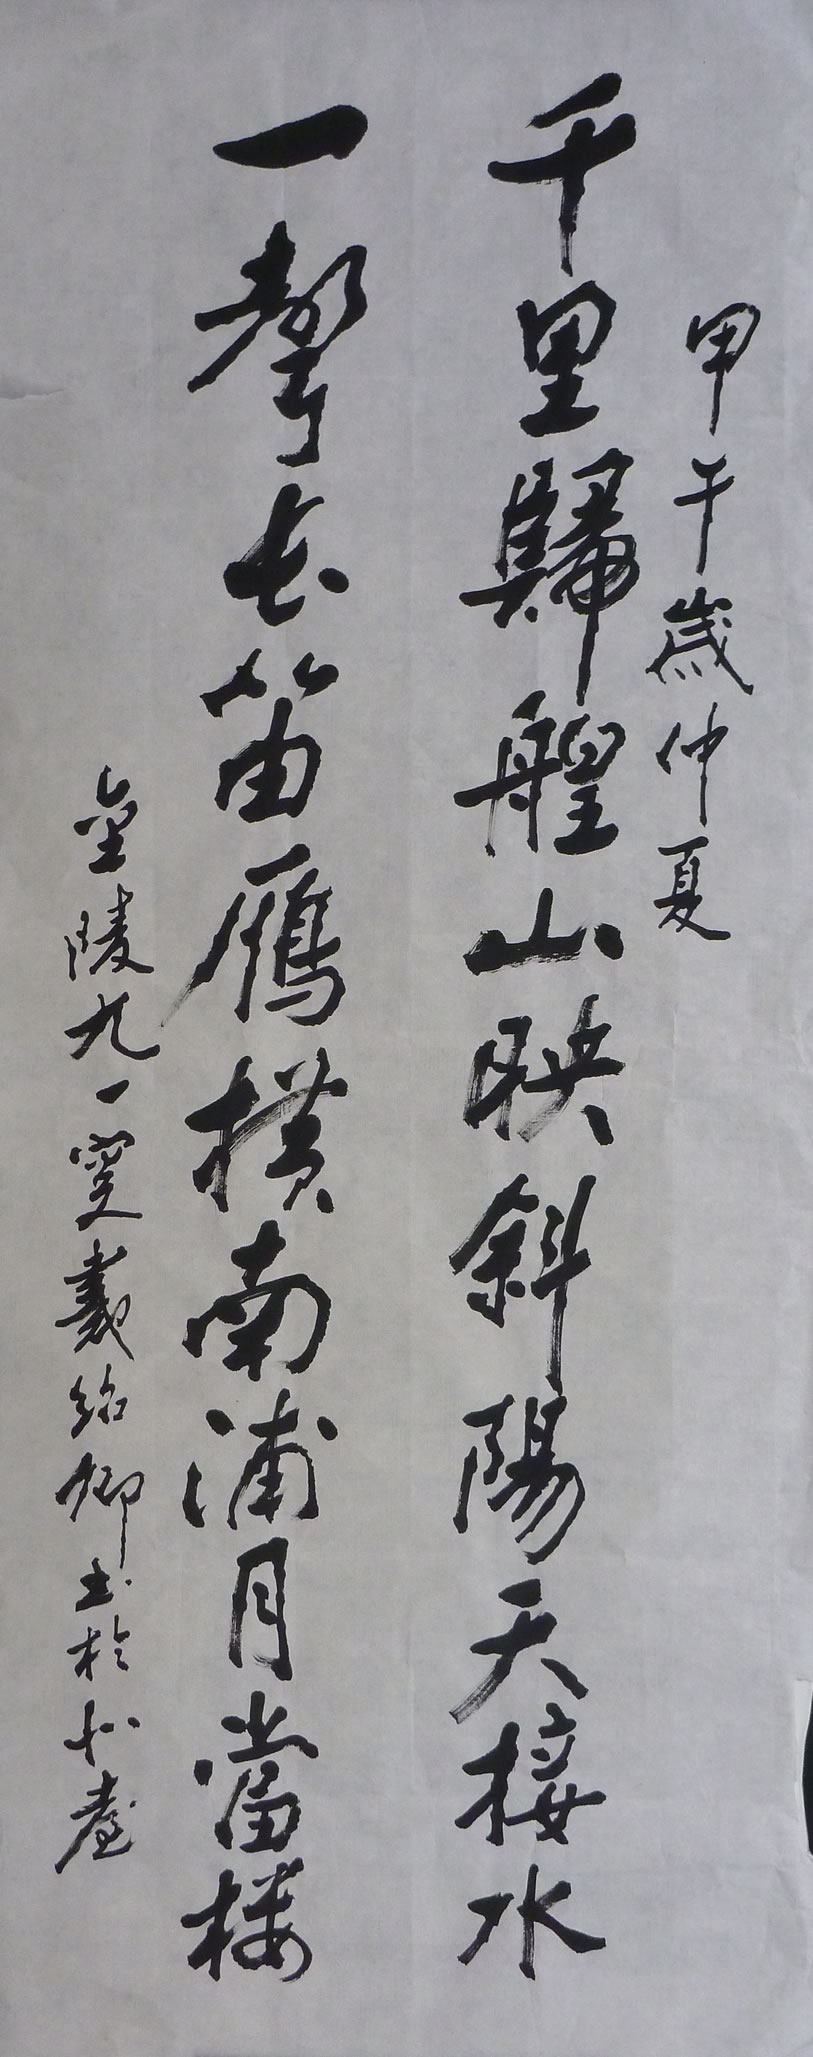 甲午歲仲夏
千里歸艎山映斜陽天接水
一聲長笛雁橫南浦月當樓
金陵九一叟戴紹卿書於